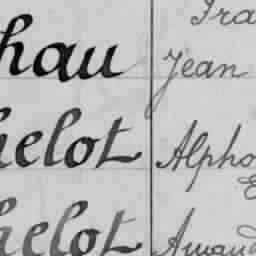 Fra
hau Jean
helot Alpho
helot Amand